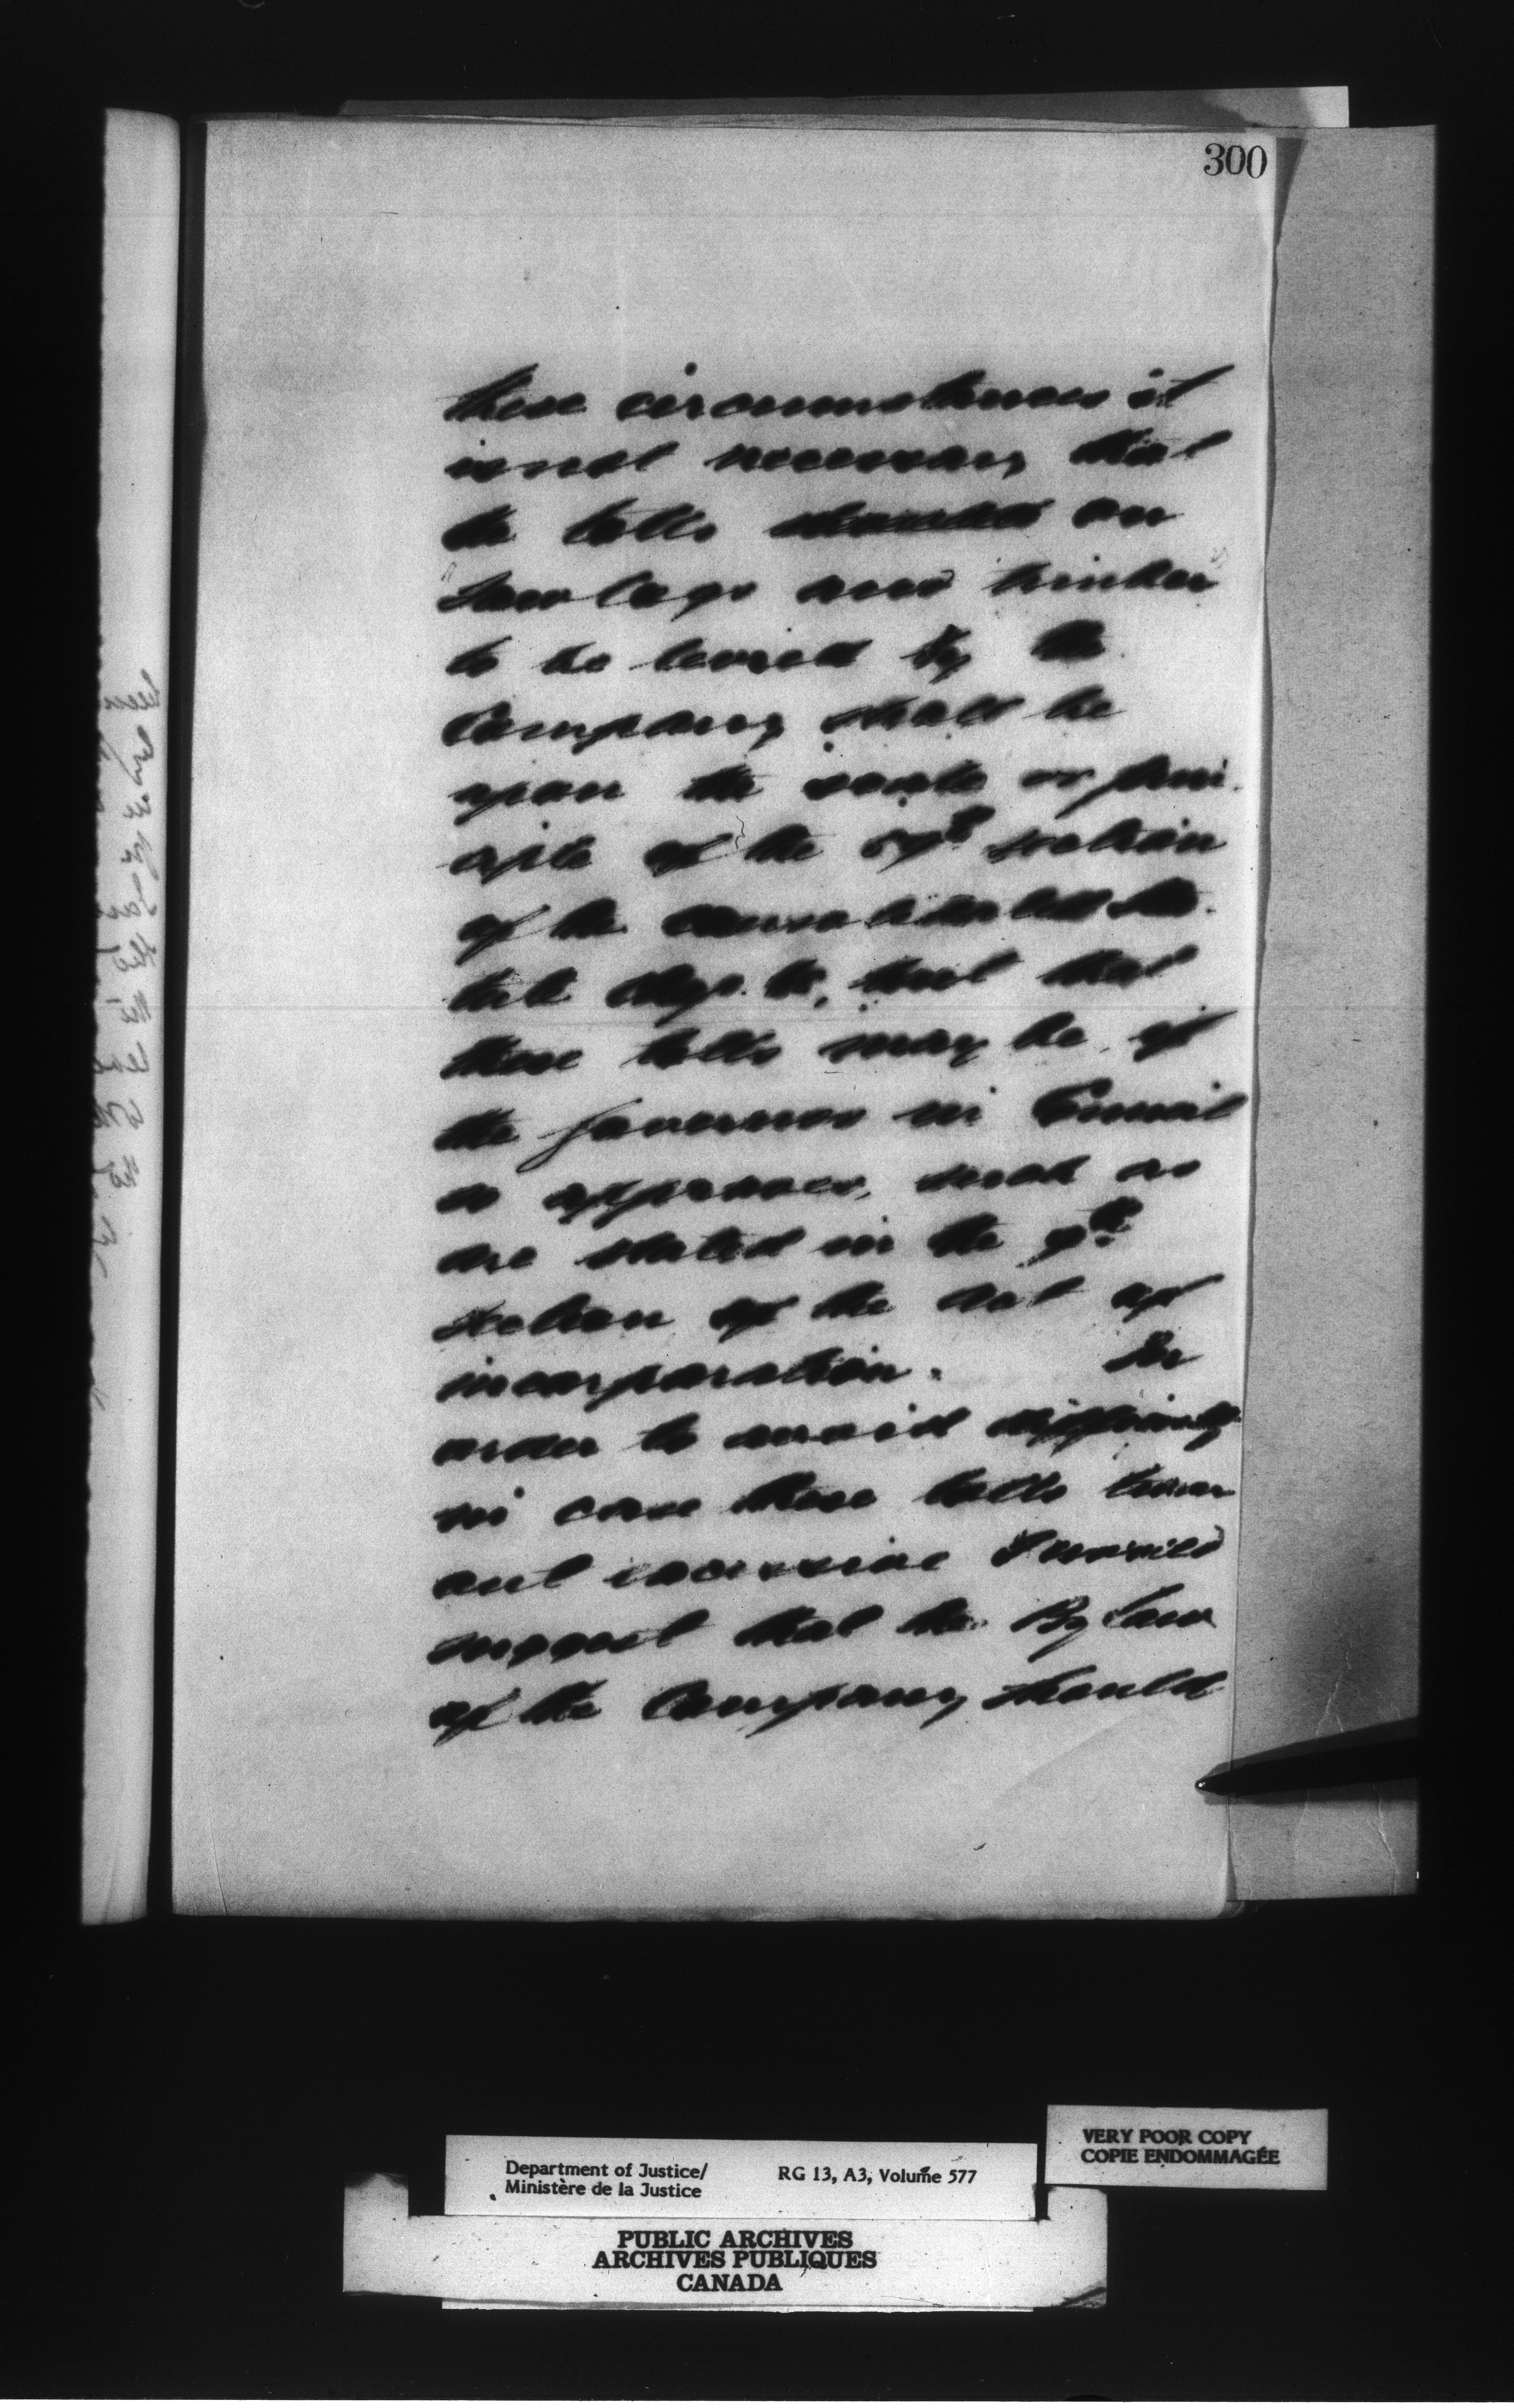 300
these circumstances it
is not necessary that
the tolls on
Saw logs and timber
to be levied by the
Company shall be
upon the scale or prin-
ciple of the 57th section
of the Consolidated Sta-
tute Chap. but that
these tolls may be, if
the Governor in Council
so approves, such as
are stated in the 9th
section of the Act of
incorporation. In
order to avoid difficulty
in case these tolls turn
out excessive I would
suggest that the By Law
of the Company should
VERY POOR COPY
COPIE ENDOMMAGÉE
Department of Justice/ RG 13, A3, Volume 577
Ministère de la Justice
PUBLIC ARCHIVES
ARCHIVES PUBLIQUES
CANADA